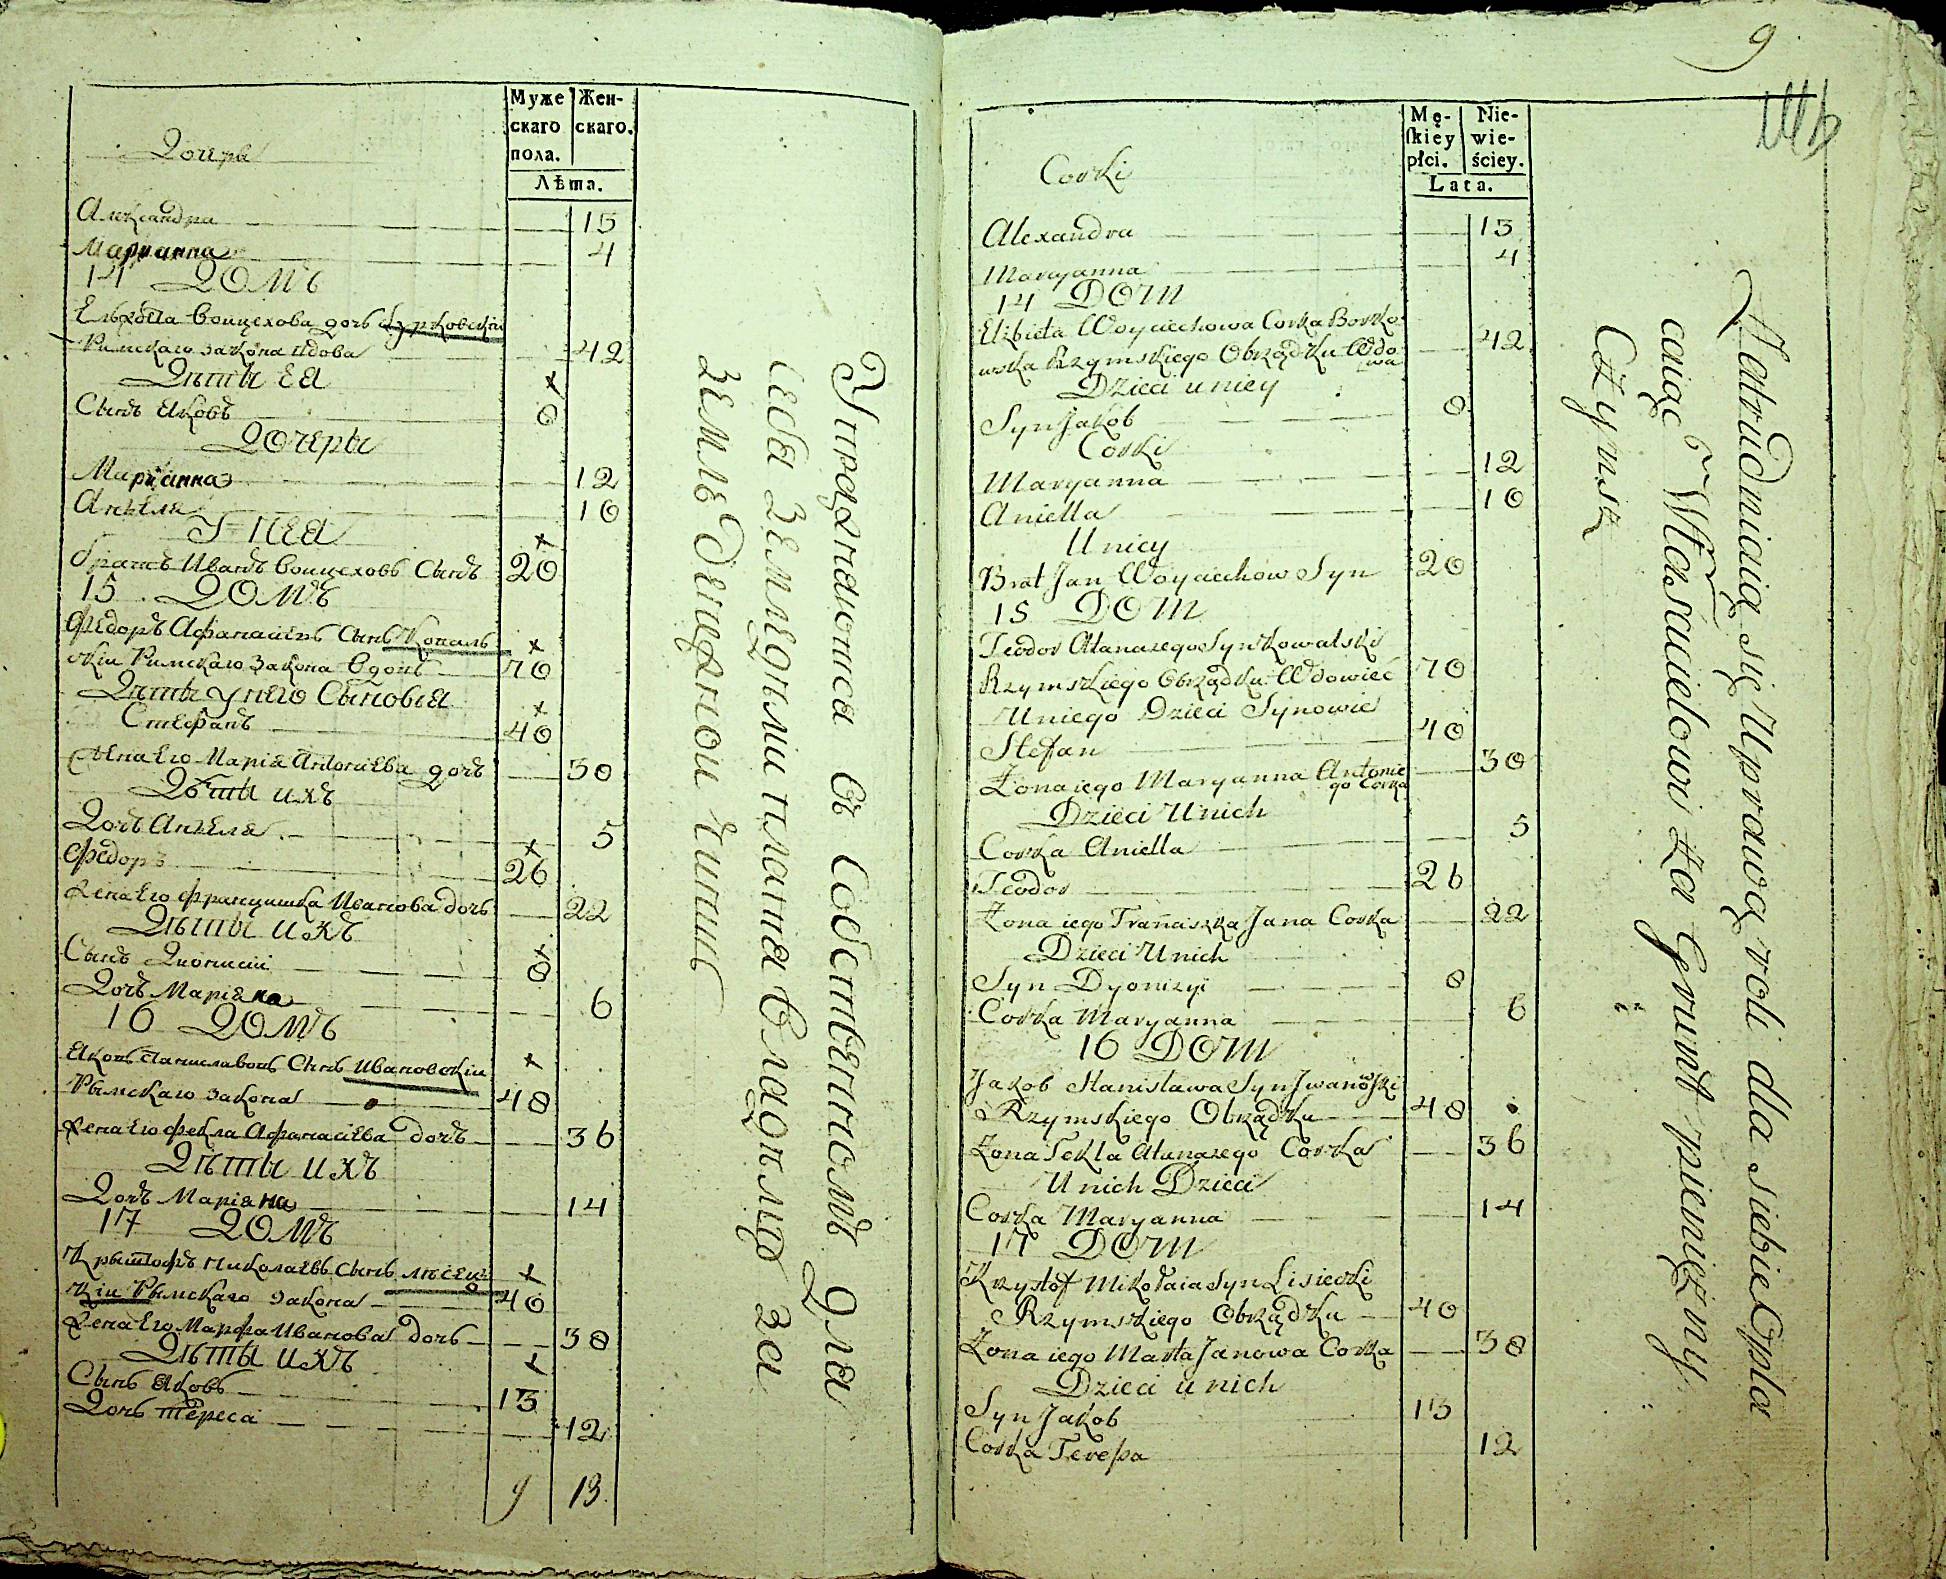 Муже
скаго
пола.
Жен-
скаго.
Лѣта.
Дочери
Александра 15
Марианна 4
14 ДОМЪ
Елжбета Воицехова дочь Бурковскаи
Римскаго закона вдова 42
Дѣти ЕЯ
Сынъ Яковъ 8
ДОЧЕРИ
Марианна 12
Анеля 10
У НЕЯ
братъ Иванъ Воицеховъ Сынъ 20
15 ДОМЪ
Федоръ Афанасiевъ Сынъ Коваль
скiи Римскаго Закона Вдовъ 70
Дѣти у него Сыновья
Стефанъ 40
Жена Его Марiя Антонiева дочь 30
Дѣти ихъ
Дочь Анеля 5
Федоръ 26
Жена Его Францишка Иванова дочь 22
Дѣти ихъ
Сынъ Дионисiи 8
Дочь Марiяна 6
16 ДОМЪ
Яковъ Станиславовъ Сынъ Ивановскiи
Рымскаго закона 48
Жена Его Фекла Афанасiева дочь 36
Дѣти ихъ
Дочь Марiяна 14
17 ДОМЪ
Крыштофъ Николаевъ Сынъ Лисец
кiи Рымскаго закона 40
Жена Его Марфа Иванова дочь 38
Дѣти ихъ
Сынъ Яковъ 13
Дочь Тереса 12
9 13
Упражнаются въ Собственномъ для
себя Земледѣлiи платя Владѣльцу за
землю денежнои Чиншъ
9
Mę-
skiey
płci.
Nie-
wie-
ściey.
Lata.
Corki
Alexandra 15
Maryanna 4
14 DOM
Elżbieta Woyciechowa Corka Borko
wska Rzymskiego Obrządku Wdo
wa 42
Dzieci u niey
Syn Jakob 8
Corki
Maryanna 12
Aniella 10
U niey
Brat Jan Woyciechow Syn 20
15 DOM
Teodor Atanazego Syn Kowalski
Rzymskiego Obrządku Wdowiec 70
U niego Dzieci Synowie
Stefan 40
Żona iego Maryanna Antonie
go Corka 30
Dzieci U nich
Corka Aniella 5
Teodor 26
Żona iego Franciszka Jana Corka 22
Dzieci U nich
Syn Dyonizyi 8
Corka Maryanna 6
16 DOM
Jakob Stanisława Syn Iwanoski
Rzymskiego Obrządku 48
Żona Tekla Atanazego Corka 36
U nich Dzieci
Corka Maryanna 14
17 DOM
Krzystof Mikołaia Syn Lisiecki
Rzymskiego Obrządku 40
Żona iego Marta Janowa Corka 38
Dzieci u nich
Syn Jakob 13
Corka Teressa 12
Zatrudniaią się Uprawą roli dla siebie Opła
caiąc Właścicielowi Za Grunt pieniężny
Czynsz